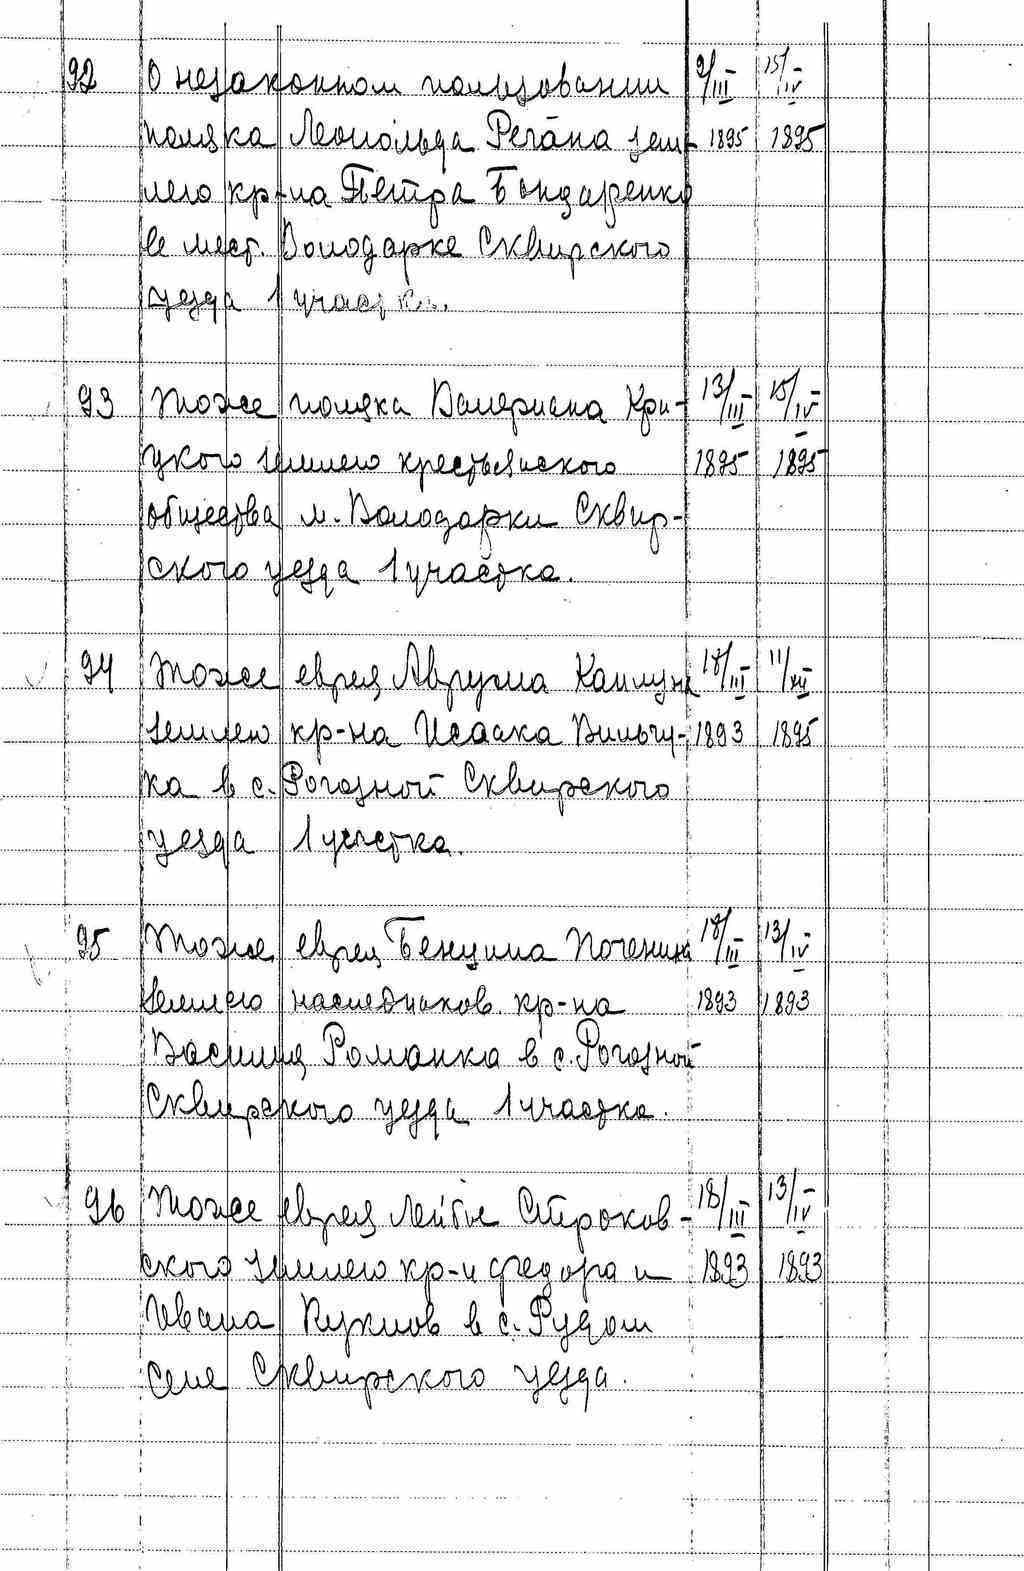 92 О незаконном пользовании 9/III 15/IV
поляка Леопольда Регана зем- 1895 1895
лею кр-на Петра Бондаренко
в мест. Володарке Сквирского
уезда 1 участка.
93 Тоже поляка Валериана Кри- 13/III 15/IV
цкого землею крестьянского 1895 1895
общества м. Володарки Сквир-
ского уезда 1 участка.
94 Тоже еврея Аврума 18/III 11/XII
землею кр-на Исаака Вильчу- 1893 1895
ка в с. Рогозной Сквирского
уезда 1 участка.
95 Тоже еврея Бенциона 18/III 13/IV
землею наследников кр-на 1893 1893
Василия Романка в с. Рогозной
Сквирского уезда 1 участка.
96 Тоже еврея Лейбы Строков- 18/III 13/IV
ского землею кр-н Федора и 1893 1893
Ивана Куклов в с. Рудом
селе Сквирского уезда.